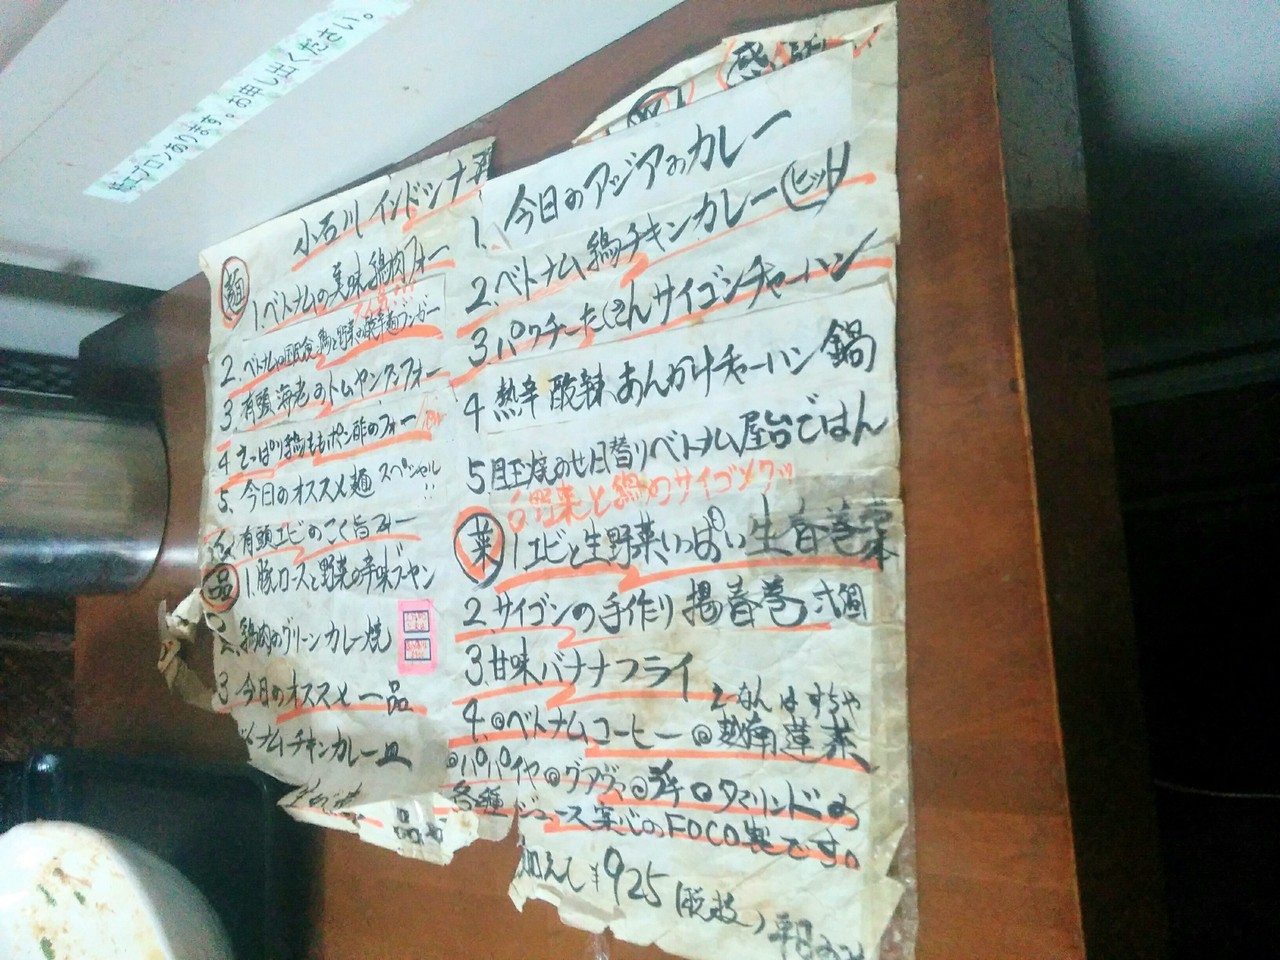 紙エプロンあります。お申し出ください。
小石川 インドシナ
麺
1. ベトナムの美味鶏肉フォー
人気!!!
2. ベトナムの国民食 鶏と野菜の酸辛麺フンガー
3. 有頭海老のトムヤンクンフォー
4 さっぱり鶏ももポン酢のフォー
5. 今日のオススメ麺 スペシャル!!
有頭エビのこく旨フォー
品
1. 豚ロースと野菜の辛味ブーヤン
2. 鶏肉のグリーンカレー焼
3 今日のオススメ一品
ベトナムチキンカレー皿
感
1. 今日のアジアのカレー
2. ベトナム鶏チキンカレー ヒット
3. パクチーたくさんサイゴンチャーハン
4 熱辛 酸辣 あんかけチャーハン鍋
5 目玉焼のせ日替りベトナム屋台ごはん
6. 野菜と鶏の
菜
1 エビと生野菜いっぱい 生春巻 壱本
2. サイゴンの手作り 揚春巻 弐個
3 甘味バナナフライ
4. @ベトナムコーヒー @越南蓮茶
@パパイヤ @グアヴァ @ライチ @タマリンドの
各種ジュース 安心のFOCO製です。
¥925 (税抜) 平日